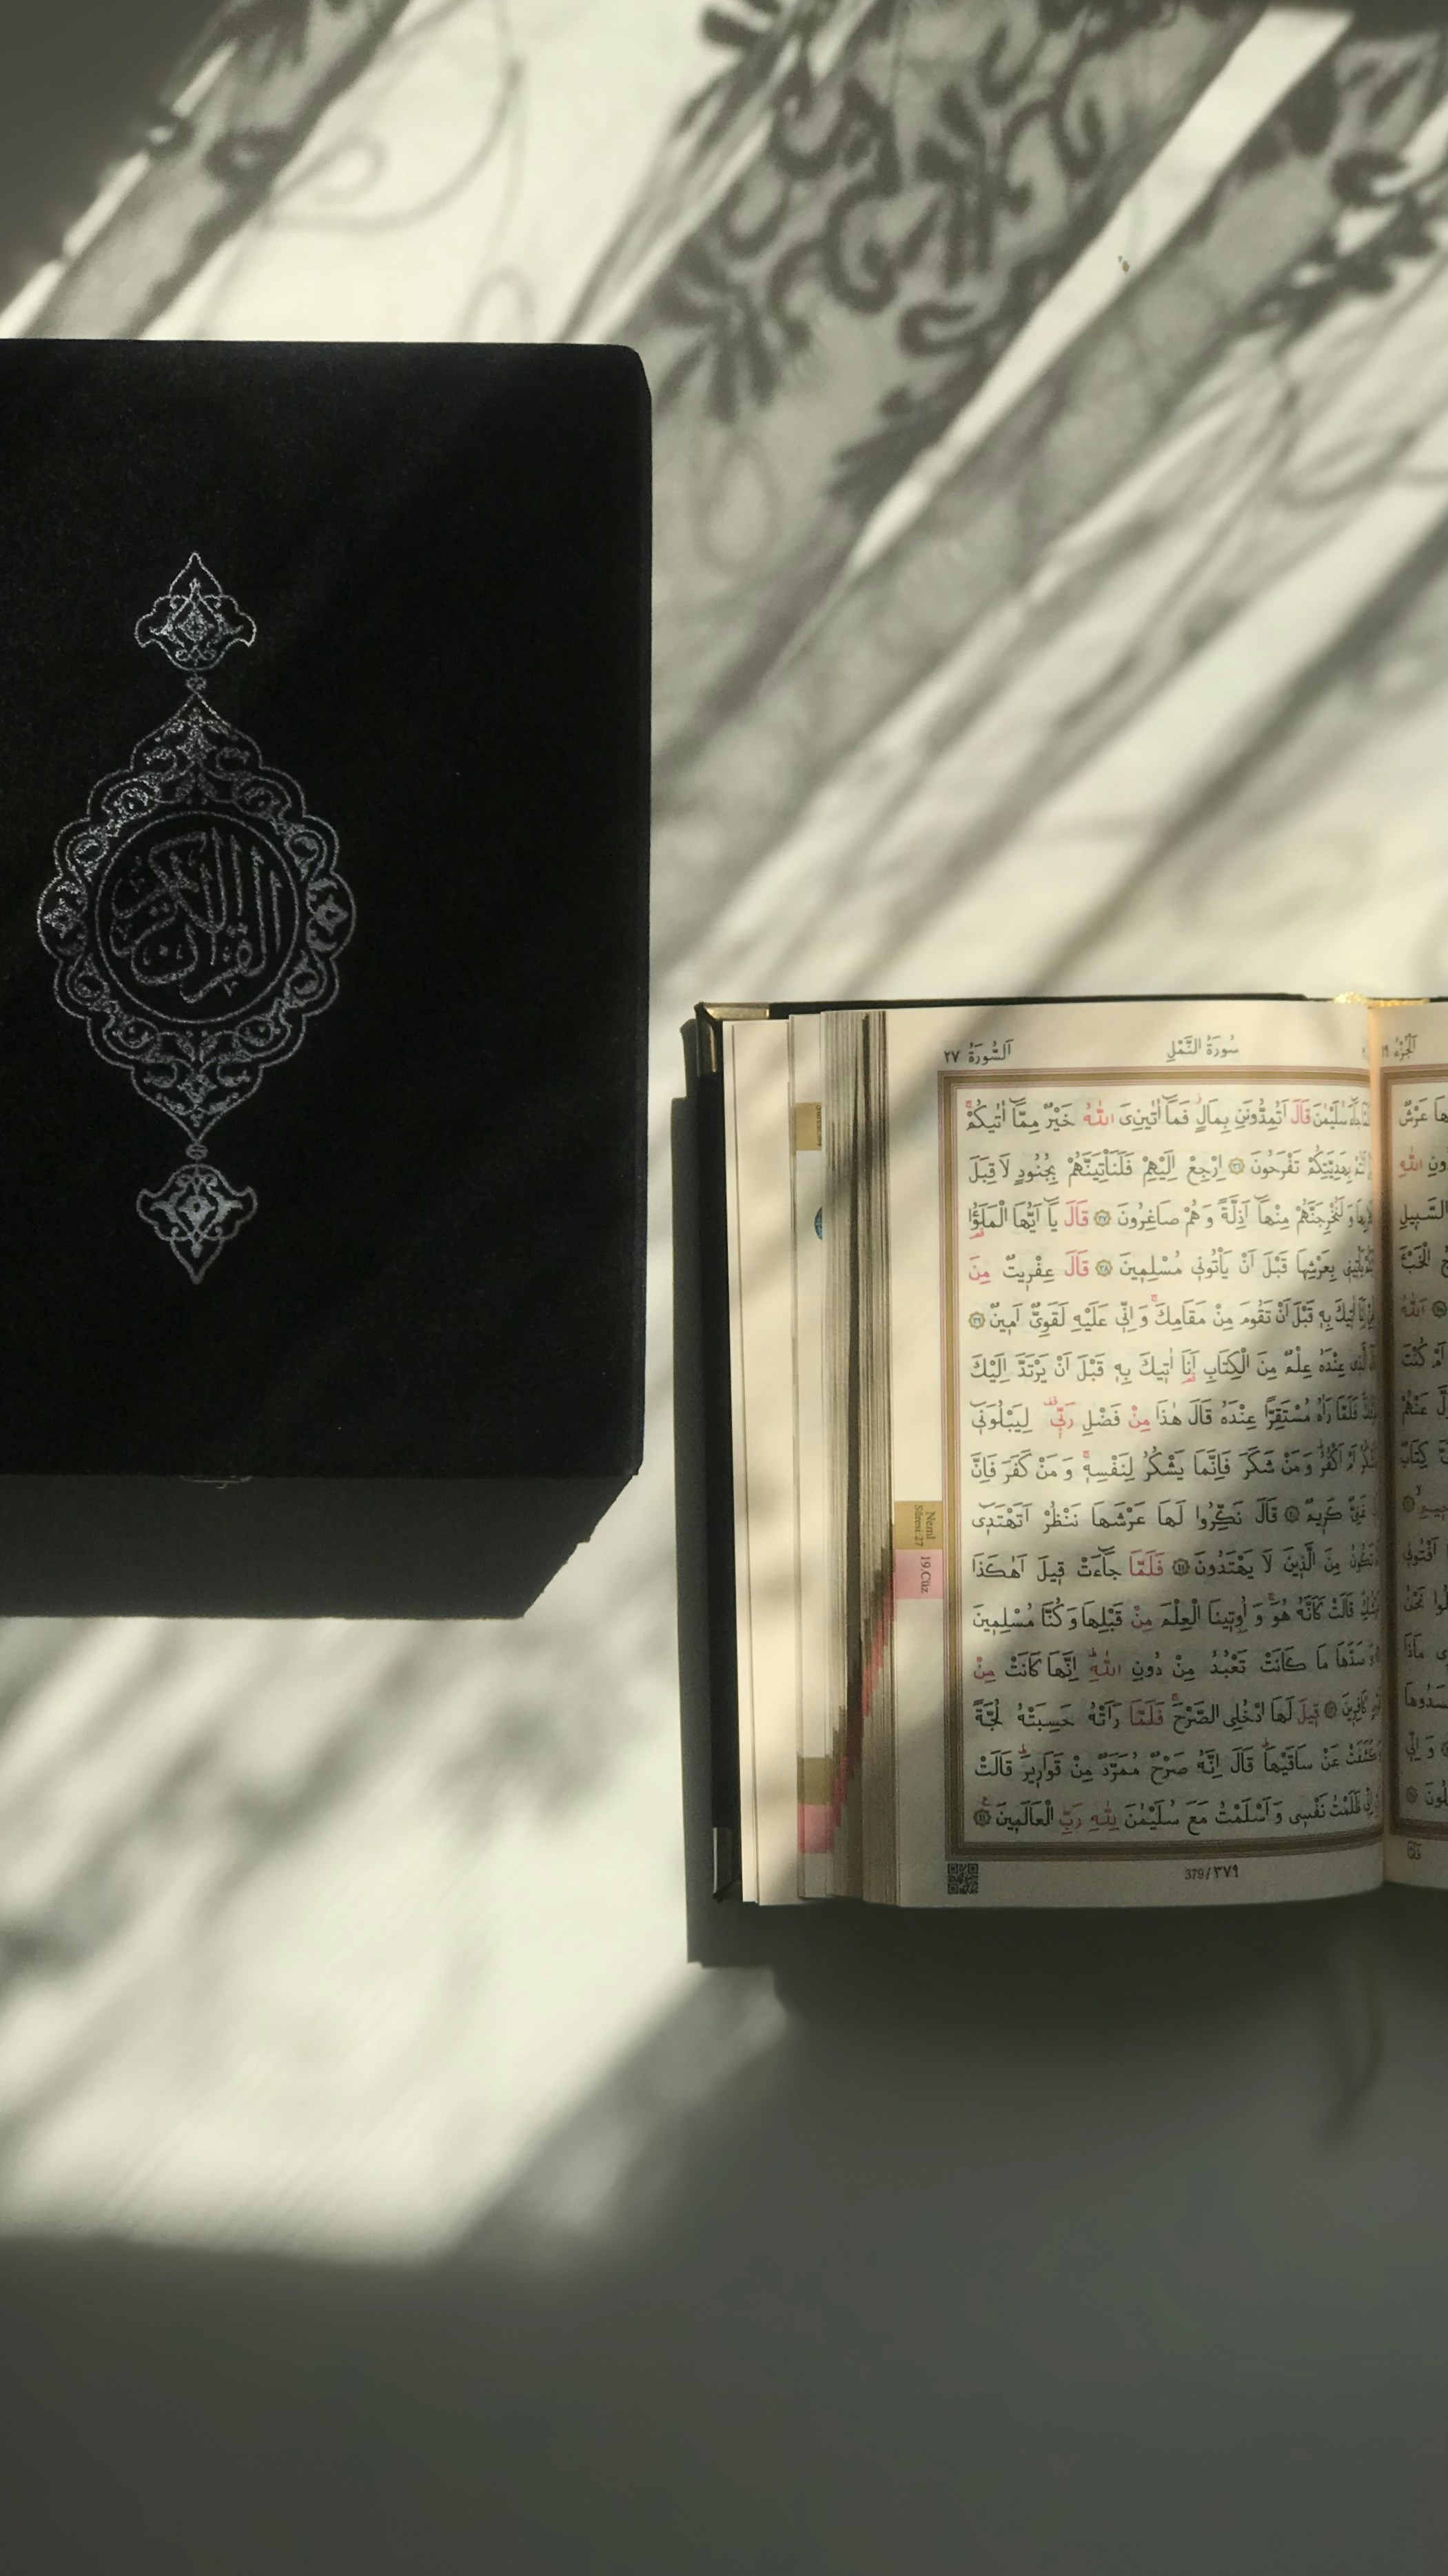 القرآن الكريم
اَلسُّورَةُ ٢٧
سُورَةُ النَّمْلِ
اَلْجُزْءُ ١٩
سُلَيْمٰنَ قَالَ اَتُمِدُّونَنِ بِمَالٍ فَمَٓا اٰتٰينِيَ اللّٰهُ خَيْرٌ مِمَّٓا اٰتٰيكُمْۚ
بِهَدِيَّتِكُمْ تَفْرَحُونَ ۝٣٦ اِرْجِعْ اِلَيْهِمْ فَلَنَأْتِيَنَّهُمْ بِجُنُودٍ لَا قِبَلَ
وَلَنُخْرِجَنَّهُمْ مِنْهَٓا اَذِلَّةً وَهُمْ صَاغِرُونَ ۝٣٧ قَالَ يَٓا اَيُّهَا الْمَلَؤُ۬ا
يَأْتِينِي بِعَرْشِهَا قَبْلَ اَنْ يَأْتُونِي مُسْلِمِينَ ۝٣٨ قَالَ عِفْرِيتٌ مِنَ
اٰتِيكَ بِهِ قَبْلَ اَنْ تَقُومَ مِنْ مَقَامِكَۚ وَاِنِّي عَلَيْهِ لَقَوِيٌّ اَمِينٌ ۝٣٩
عِنْدَهُ عِلْمٌ مِنَ الْكِتَابِ اَنَا۬ اٰتِيكَ بِهِ قَبْلَ اَنْ يَرْتَدَّ اِلَيْكَ
فَلَمَّا رَاٰهُ مُسْتَقِرًّا عِنْدَهُ قَالَ هٰذَا مِنْ فَضْلِ رَبِّي۠ لِيَبْلُوَنِٓي
اَمْ اَكْفُرُۜ وَمَنْ شَكَرَ فَاِنَّمَا يَشْكُرُ لِنَفْسِهِۚ وَمَنْ كَفَرَ فَاِنَّ
غَنِيٌّ كَرِيمٌ ۝٤٠ قَالَ نَكِّرُوا لَهَا عَرْشَهَا نَنْظُرْ اَتَهْتَدِٓي
تَكُونُ مِنَ الَّذِينَ لَا يَهْتَدُونَ ۝٤١ فَلَمَّا جَٓاءَتْ قِيلَ اَهٰكَذَا
قَالَتْ كَاَنَّهُ هُوَۚ وَاُو۫تِينَا الْعِلْمَ مِنْ قَبْلِهَا وَكُنَّا مُسْلِمِينَ
وَصَدَّهَا مَا كَانَتْ تَعْبُدُ مِنْ دُونِ اللّٰهِۜ اِنَّهَا كَانَتْ مِنْ
كَافِرِينَ ۝٤٣ قِيلَ لَهَا ادْخُلِي الصَّرْحَۚ فَلَمَّا رَاَتْهُ حَسِبَتْهُ لُجَّةً
وَكَشَفَتْ عَنْ سَاقَيْهَاۜ قَالَ اِنَّهُ صَرْحٌ مُمَرَّدٌ مِنْ قَوَارِيرَۜ قَالَتْ
ظَلَمْتُ نَفْسِي وَاَسْلَمْتُ مَعَ سُلَيْمٰنَ لِلّٰهِ رَبِّ الْعَالَمِينَ ۝٤٤
379 / ٣٧٩
Neml
Sûresi 27
19.Cüz
عَرْشٌ
اللّٰهِ
السَّبِيلِ
الْخَبْءَ
اَللّٰهُ
كُنْتَ
عَنْهُمْ
كِتَابٌ
اَفْتُونِي
نَحْنُ
مَاذَا